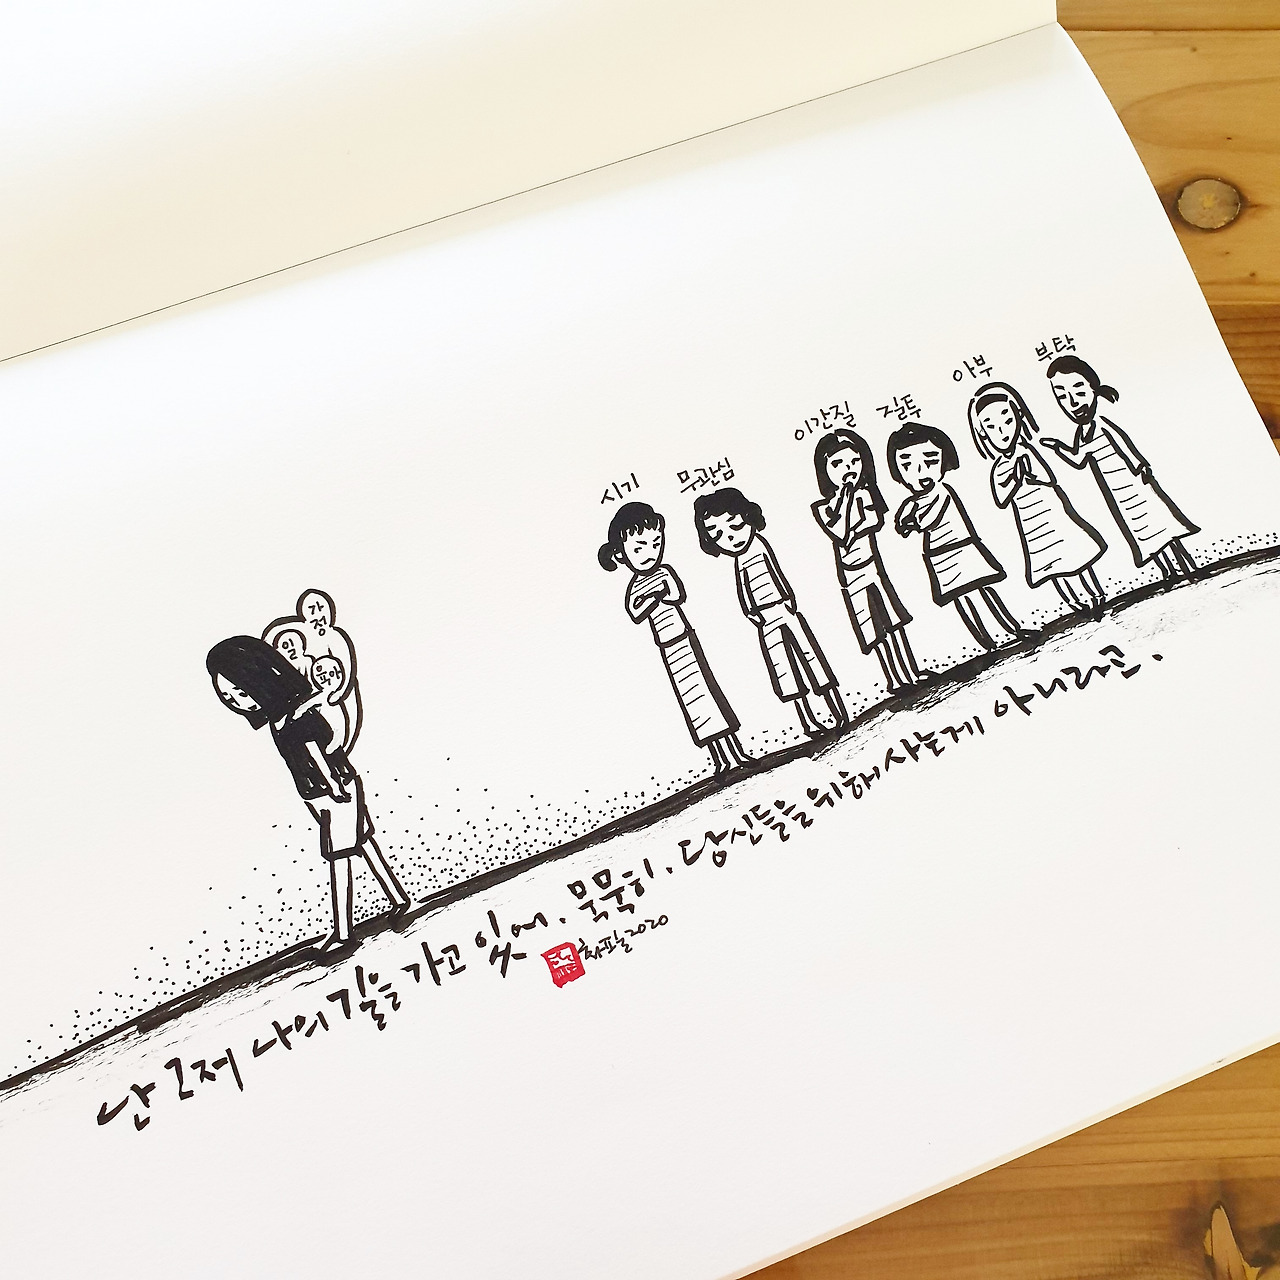 시기
무관심
이간질
질투
아부
부탁
가정
일
육아
난 그저 나의 길을 가고 있어. 묵묵히. 당신들을 위해 사는게 아니라고.
차필2020